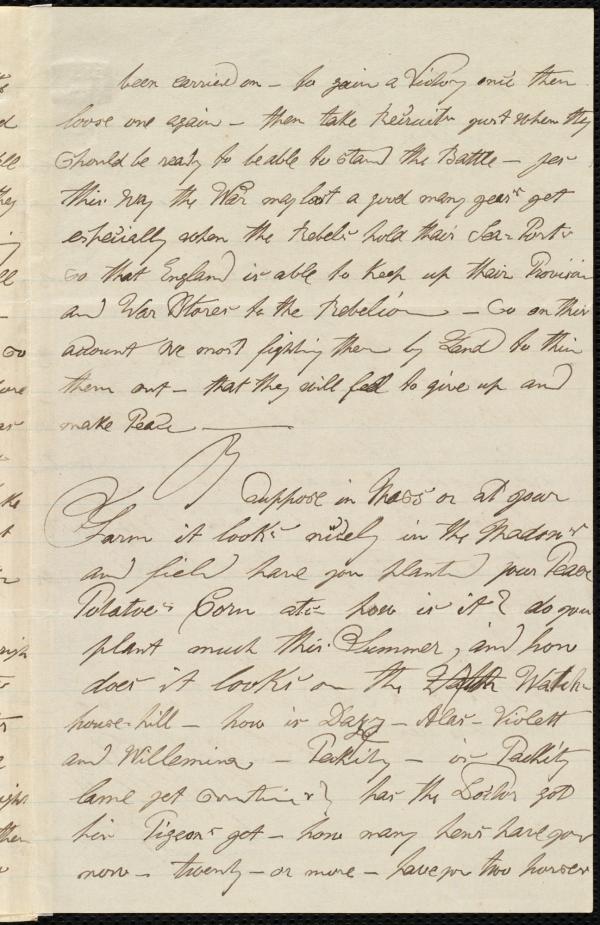 been carried on – to gain a Victory once then
loose one again – then take Recruits just when they
Should be ready to be able to stand the Battle – yes
this way the War may last a good many years yet
especially when the Rebels hold thair Sea-Ports
So that England is able to Keep up thair Provision
and War Stores to the Rebelion – So on this
acount we most fighting them by Land to thin
them out – that they will feel to give up and
make Peace
I Suppose in Mass or at your
Farm it looks nicely in the Meadows
and field have you planted your Pease
Potatoes Corn atc how is it? do you
plant much this Summer, and how
does it looks on the Watch-
house-hill – how is Dazy – Alas – Violett
and Willemina – Packity – is Packity
lame yet Sometimes? has the Doctor got
his Pigeons yet – how many hens have you
now – twenty – or more – have you two horses